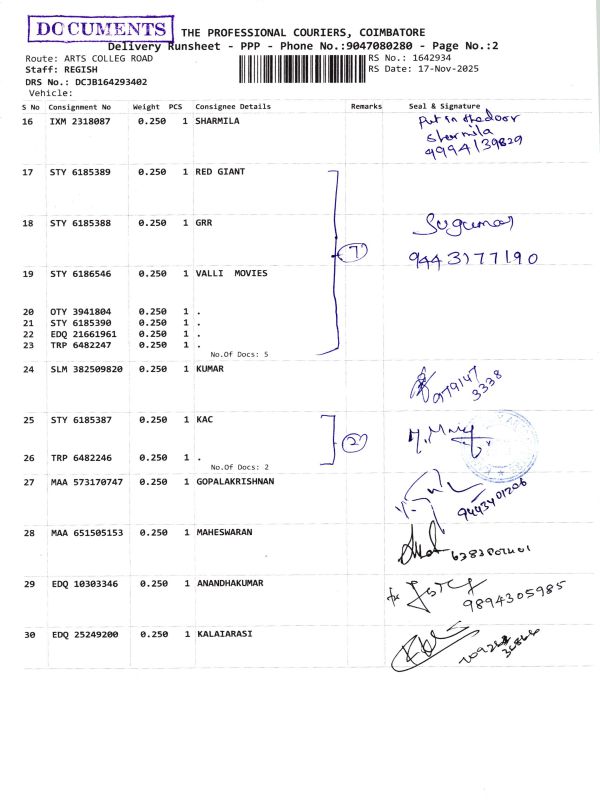 DOCUMENTS
THE PROFESSIONAL COURIERS, COIMBATORE
Delivery Runsheet - PPP - Phone No.:9047080280 - Page No.:2
Route: ARTS COLLEG ROAD RS No.: 1642934
Staff: REGISH RS Date: 17-Nov-2025
DRS No.: DCJB164293402
Vehicle:
S No Consignment No Weight PCS Consignee Details Remarks Seal & Signature
16 IXM 2318087 0.250 1 SHARMILA
Put in the door
Sharmila
9994139829
17 STY 6185389 0.250 1 RED GIANT
18 STY 6185388 0.250 1 GRR Sugumar
7 9443177190
19 STY 6186546 0.250 1 VALLI MOVIES
20 OTY 3941804 0.250 1 .
21 STY 6185390 0.250 1 .
22 EDQ 21661961 0.250 1 .
23 TRP 6482247 0.250 1 .
No.Of Docs: 5
24 SLM 382509820 0.250 1 KUMAR
979147
3338
25 STY 6185387 0.250 1 KAC
2
26 TRP 6482246 0.250 1 .
No.Of Docs: 2
27 MAA 573170747 0.250 1 GOPALAKRISHNAN
9443401206
28 MAA 651505153 0.250 1 MAHESWARAN
29 EDQ 10303346 0.250 1 ANANDHAKUMAR
9894305985
30 EDQ 25249200 0.250 1 KALAIARASI